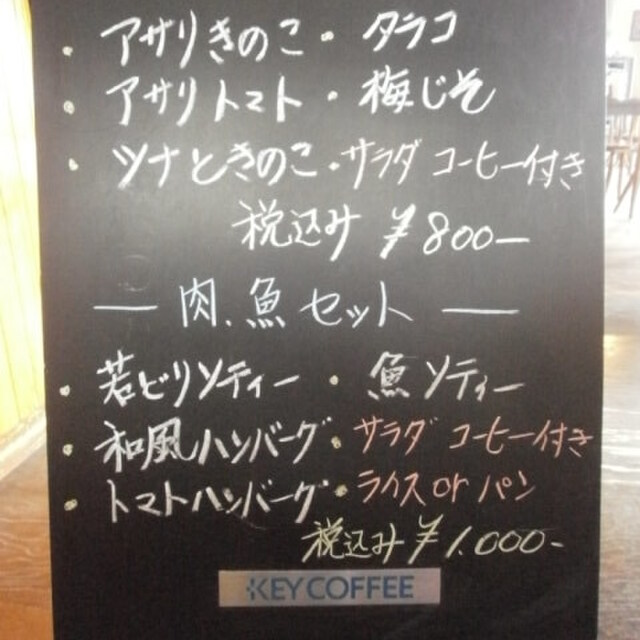 ・アサリきのこ ・タラコ
・アサリトマト ・梅じそ
・ツナときのこ ・サラダ コーヒー付き
税込み ¥800ー
ー 肉、魚セット ー
・若どりソティー ・魚ソティー
・和風ハンバーグ ・サラダ コーヒー付き
・トマトハンバーグ ・ライス or パン
税込み ¥1.000-
KEY COFFEE